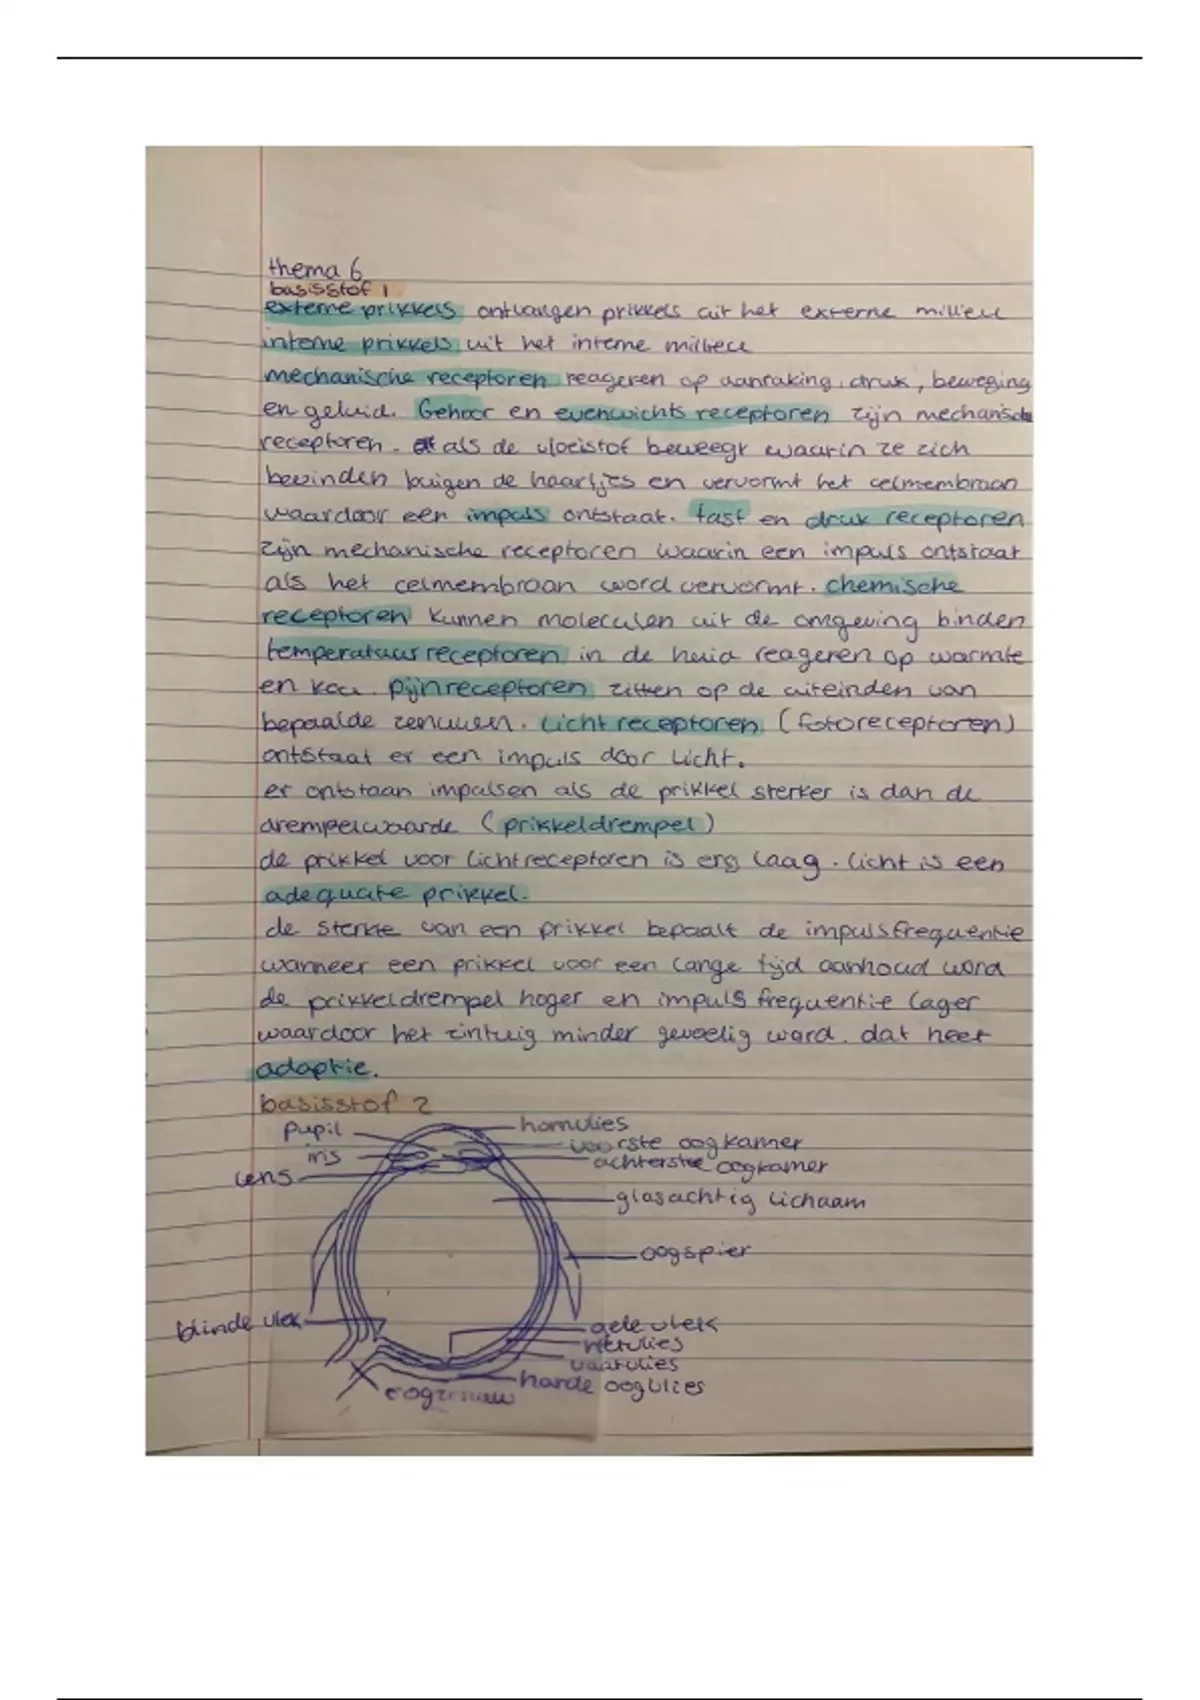 thema 6
basisstof 1
externe prikkels ontvangen prikkels uit het externe milieu
interne prikkels uit het interne milieu
mechanische receptoren reageren op aanraking, druk, beweging
en geluid. Gehoor en evenwichts receptoren zijn mechanische
receptoren. als de vloeistof beweegt waarin ze zich
bevinden buigen de haartjes en vervormt het celmembraan
waardoor een impuls ontstaat. tast en druk receptoren
zijn mechanische receptoren waarin een impuls ontstaat
als het celmembraan word vervormt. chemische
receptoren kunnen moleculen uit de omgeving binden
temperatuur receptoren in de huid reageren op warmte
en kou. Pijnreceptoren zitten op de uiteinden van
bepaalde zenuwen. Licht receptoren (fotoreceptoren)
ontstaat er een impuls door licht.
er ontstaan impulsen als de prikkel sterker is dan de
drempelwaarde (prikkeldrempel)
de prikkel voor lichtreceptoren is erg laag. licht is een
adequate prikkel.
de sterkte van een prikkel bepaalt de impulsfrequentie
wanneer een prikkel voor een lange tijd aanhoud word
de prikkeldrempel hoger en impuls frequentie lager
waardoor het zintuig minder gevoelig word. dat heet
adaptie.
basisstof 2
pupil
hornvlies
voorste oogkamer
iris
achterste oogkamer
lens
glasachtig lichaam
oogspier
blinde vlek
gele vlek
netvlies
vaatvlies
harde oogvlies
oogzenuw